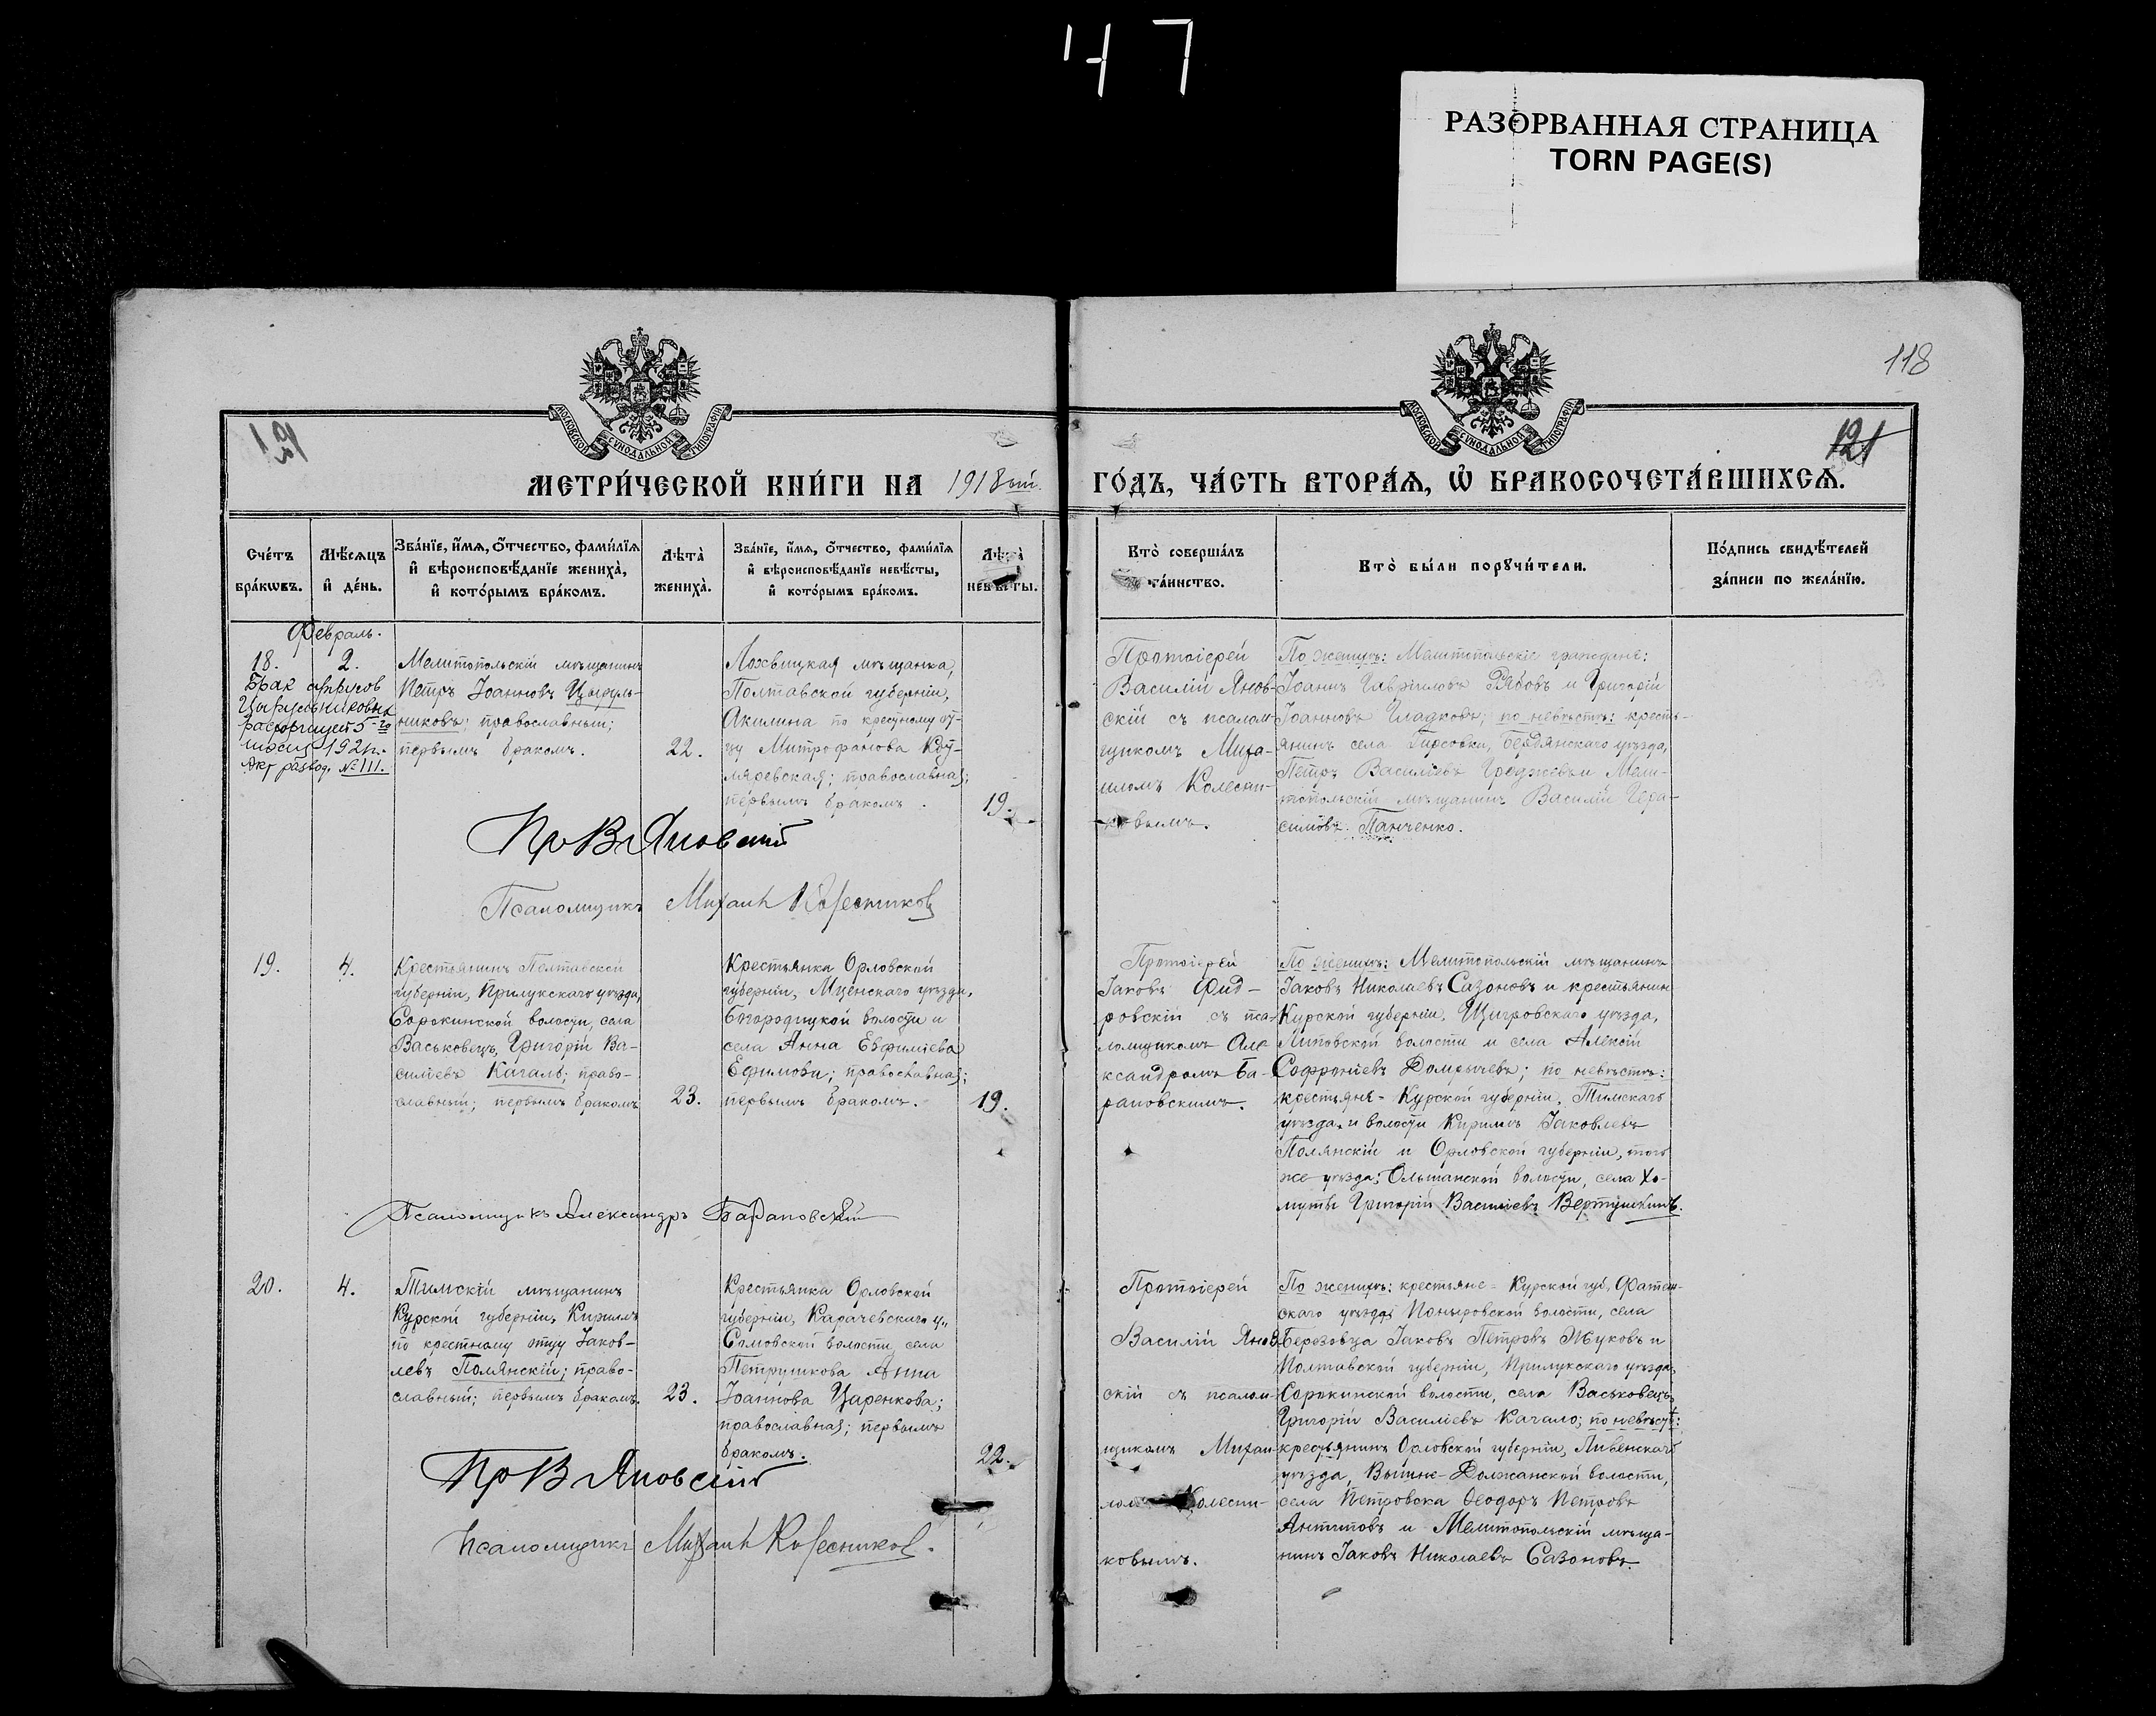 47
РАЗОРВАННАЯ СТРАНИЦА
TORN PAGE(S)
118
121
МОСКОВСКОЙ СѴНОДАЛЬНОЙ ТИПОГРАФІИ
МОСКОВСКОЙ СѴНОДАЛЬНОЙ ТИПОГРАФІИ
МЕТРИ́ЧЕСКОЙ КНИ́ГИ НА 1918ый.
ГО́ДЪ, ЧА́СТЬ ВТОРА́Ѧ, Ѽ БРАКОСОЧЕТА́ВШИХСѦ.
Сче́тъ
бра́кѡвъ.
Мѣ́сѧцъ
и҆ де́нь.
Зва́нїе, и҆́мѧ, ѻ҆́тчество, фами́лїѧ
и҆ вѣроисповѣ́данїе жениха̀,
и҆ кото́рымъ бра́комъ.
Лѣта̀
жениха̀.
Зва́нїе, и҆́мѧ, ѻ҆́тчество, фами́лїѧ
и҆ вѣроисповѣ́данїе невѣ́сты,
и҆ кото́рымъ бра́комъ.
Лѣта̀
невѣ́сты.
Кто̀ соверша́лъ
та́инство.
Кто̀ бы́ли порꙋчи́тели.
По́дпись свидѣ́телей
за́писи по жела́нїю.
Февраль.
18.
2.
Брак
расторгнут 5-го
192
Акт развод. № 111.
Мелитопольскій мѣщанинъ
Петръ Іоанновъ Цырул-
никовъ; православный;
первымъ бракомъ.
22.
Лохвицкая мѣщанка,
Полтавской губерніи,
Акилина по крестному от-
цу Митрофанова
православная;
первымъ бракомъ.
19.
Протоіерей
Василій Янов-
скій съ псалом-
щикомъ Миха-
иломъ Колесни-
ковымъ.
По женихѣ: Мелитопольскіе граждане:
Іоаннъ Гавриловъ Рябовъ и Григорій
Іоанновъ Гладковъ; по невѣстѣ: кресть-
янинъ села Гирсовка, Бердянскаго уѣзда,
Петръ Василіевъ и Мели-
топольскій мѣщанинъ Василій Гера-
симовъ Панченко.
Пр В Яновскій
Псаломщикъ Михаил Колесников
19.
4.
Крестьянинъ Полтавской
губерніи, Прилукскаго уѣзда,
Сорокинской волости, села
Васьковецъ, Григорій Ва-
силіевъ Кагалъ; право-
славный; первымъ бракомъ
23.
Крестьянка Орловской
губерніи, Мценскаго уѣзда,
Богородицкой волости и
села Анна Евфиміева
Ефимова; православная;
первымъ бракомъ.
19.
Протоіерей
Іаковъ Фид-
ровскій съ пса-
ломщикомъ Але-
ксандромъ Ба-
рановскимъ.
По женихѣ: Мелитопольскій мѣщанинъ
Іаковъ Николаевъ Сазоновъ и крестьянин
Курской губерніи, Щигровскаго уѣзда,
Липовской волости и села Алексій
Софроніевъ Домрычевъ; по невѣстѣ:
крестьяне – Курской губерніи, Тимскаго
уѣзда и волости Кириллъ Іаковлевъ
Полянскій и Орловской губерніи, того
же уѣзда, Ольшанской волости, села Хо-
муты Григорій Василіевъ Вертушкинъ.
Псаломщикъ Александръ Барановскій
20.
4.
Тимскій мѣщанинъ
Курской губерніи, Кириллъ
по крестному отцу Іаков-
левъ Полянскій; право-
славный; первымъ бракомъ.
23.
Крестьянка Орловской
губерніи, Карачевскаго у.,
волости, села
Петрушкова Анна
Іоаннова Царенкова;
православная; первымъ
бракомъ.
22.
Протоіерей
Василій Янов
скій съ псалом-
щикомъ Михаи-
лом Колесни-
ковымъ.
По женихѣ: крестьяне – Курской губ, Фатеж-
скаго уѣзда, Поныровской волости, села
Березовца Іаковъ Петровъ Жуковъ и
Полтавской губерніи, Прилукскаго уѣзда,
Сорокинской волости, села Васьковецъ,
Григорій Василіевъ Кагало; по невѣстѣ:
крестьянинъ Орловской губерніи, Ливенскаго
уѣзда, Вышне-Должанской волости,
села Петровска Ѳеодоръ Петровъ
Антиповъ и Мелитопольскій мѣща-
нинъ Іаковъ Николаевъ Сазоновъ.
Пр В Яновскій
Псаломщикъ Михаил Колесников.